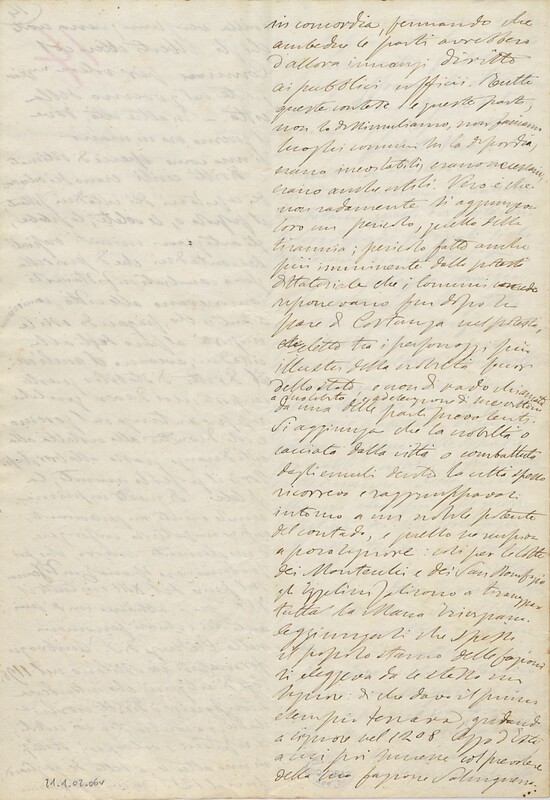 in concordia, fermando che
ambedue le parti avrebbero
d'allora innanzi diritto
ai pubblici ufficii. Tutte
queste contese e queste parti,
non lo dissimuliamo, non facciamo
luoghi comuni su la discordia,
erano inevitabili, erano necessarie,
erano anche utili. Vero è che
non radamente si aggiungea
loro un pericolo, quello della
tirannia; pericolo fatto anche
più imminente dalla potestà
dittatoriale che i comuni
riponevano pur dopo la
pace di Costanza nel potestà,
eletto tra i personaggi più
illustri della nobiltà fuor
dello stato, e non di rado chiamato
da una delle parti prevalenti.
Si aggiunga che la nobiltà o
cacciata dalla città o combattuta
dagli emuli dentro la città spesso
ricorreva e raggruppavasi
intorno a un nobile potente
del contado, e quello ne
a poco signore: così per le lotte
dei Montecchi e dei San Bonifazio
gli Ezzelini salirono a tiranneggiare
tutta la Marca Trivigiana.
Aggiungasi che spesso
il popolo stanco delle fazioni
si eleggeva da se stesso un
signore: di che dava il primo
esempio Ferrara, gridando
a signore nel 1208 Azzo d'Este
a cui poi successe col prevalere
della fazione Salinguerra
21.1.02.06v